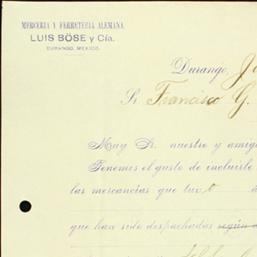 MERCERIA Y FERRETERIA ALEMANA
LUIS BÖSE y Cía.
DURANGO, MEXICO.
Durango,
Sr. Francisco G.
Muy Sr. nuestro y amigo
Tenemos el gusto de incluirle
las mercancias que tuvo
que han sido despachadas según